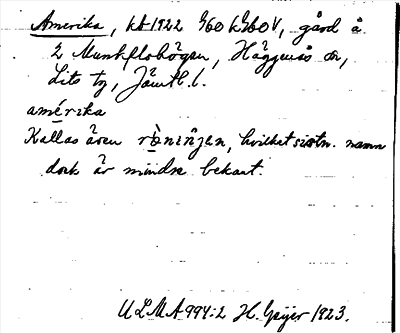 Amerika, kA 1922 960 k 960 V, gård å
2 Munkflohögen, Häggenås sn,
Lits tg, Jämtl. l.
amérika
Kallas även rò̱niŋen, hvilket sistn. namn
dock är mindre bekant.
ULMA 994:2 H. Geijer 1923.